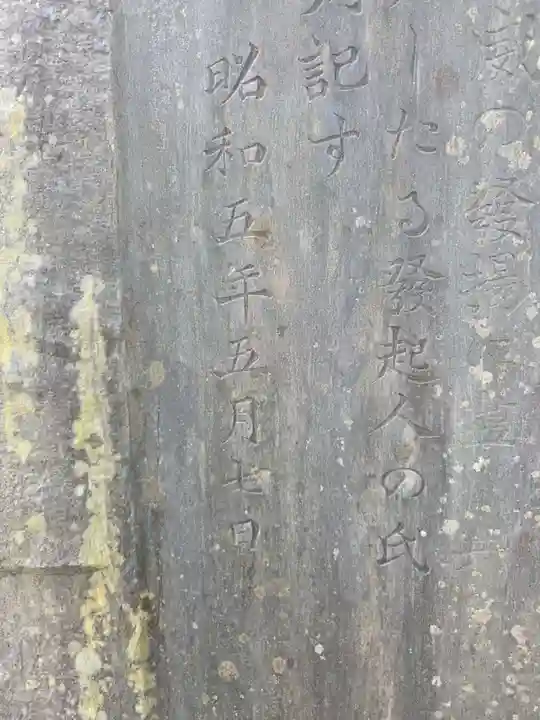 の發揚
したる發起人の氏
記す
昭和五年五月七日